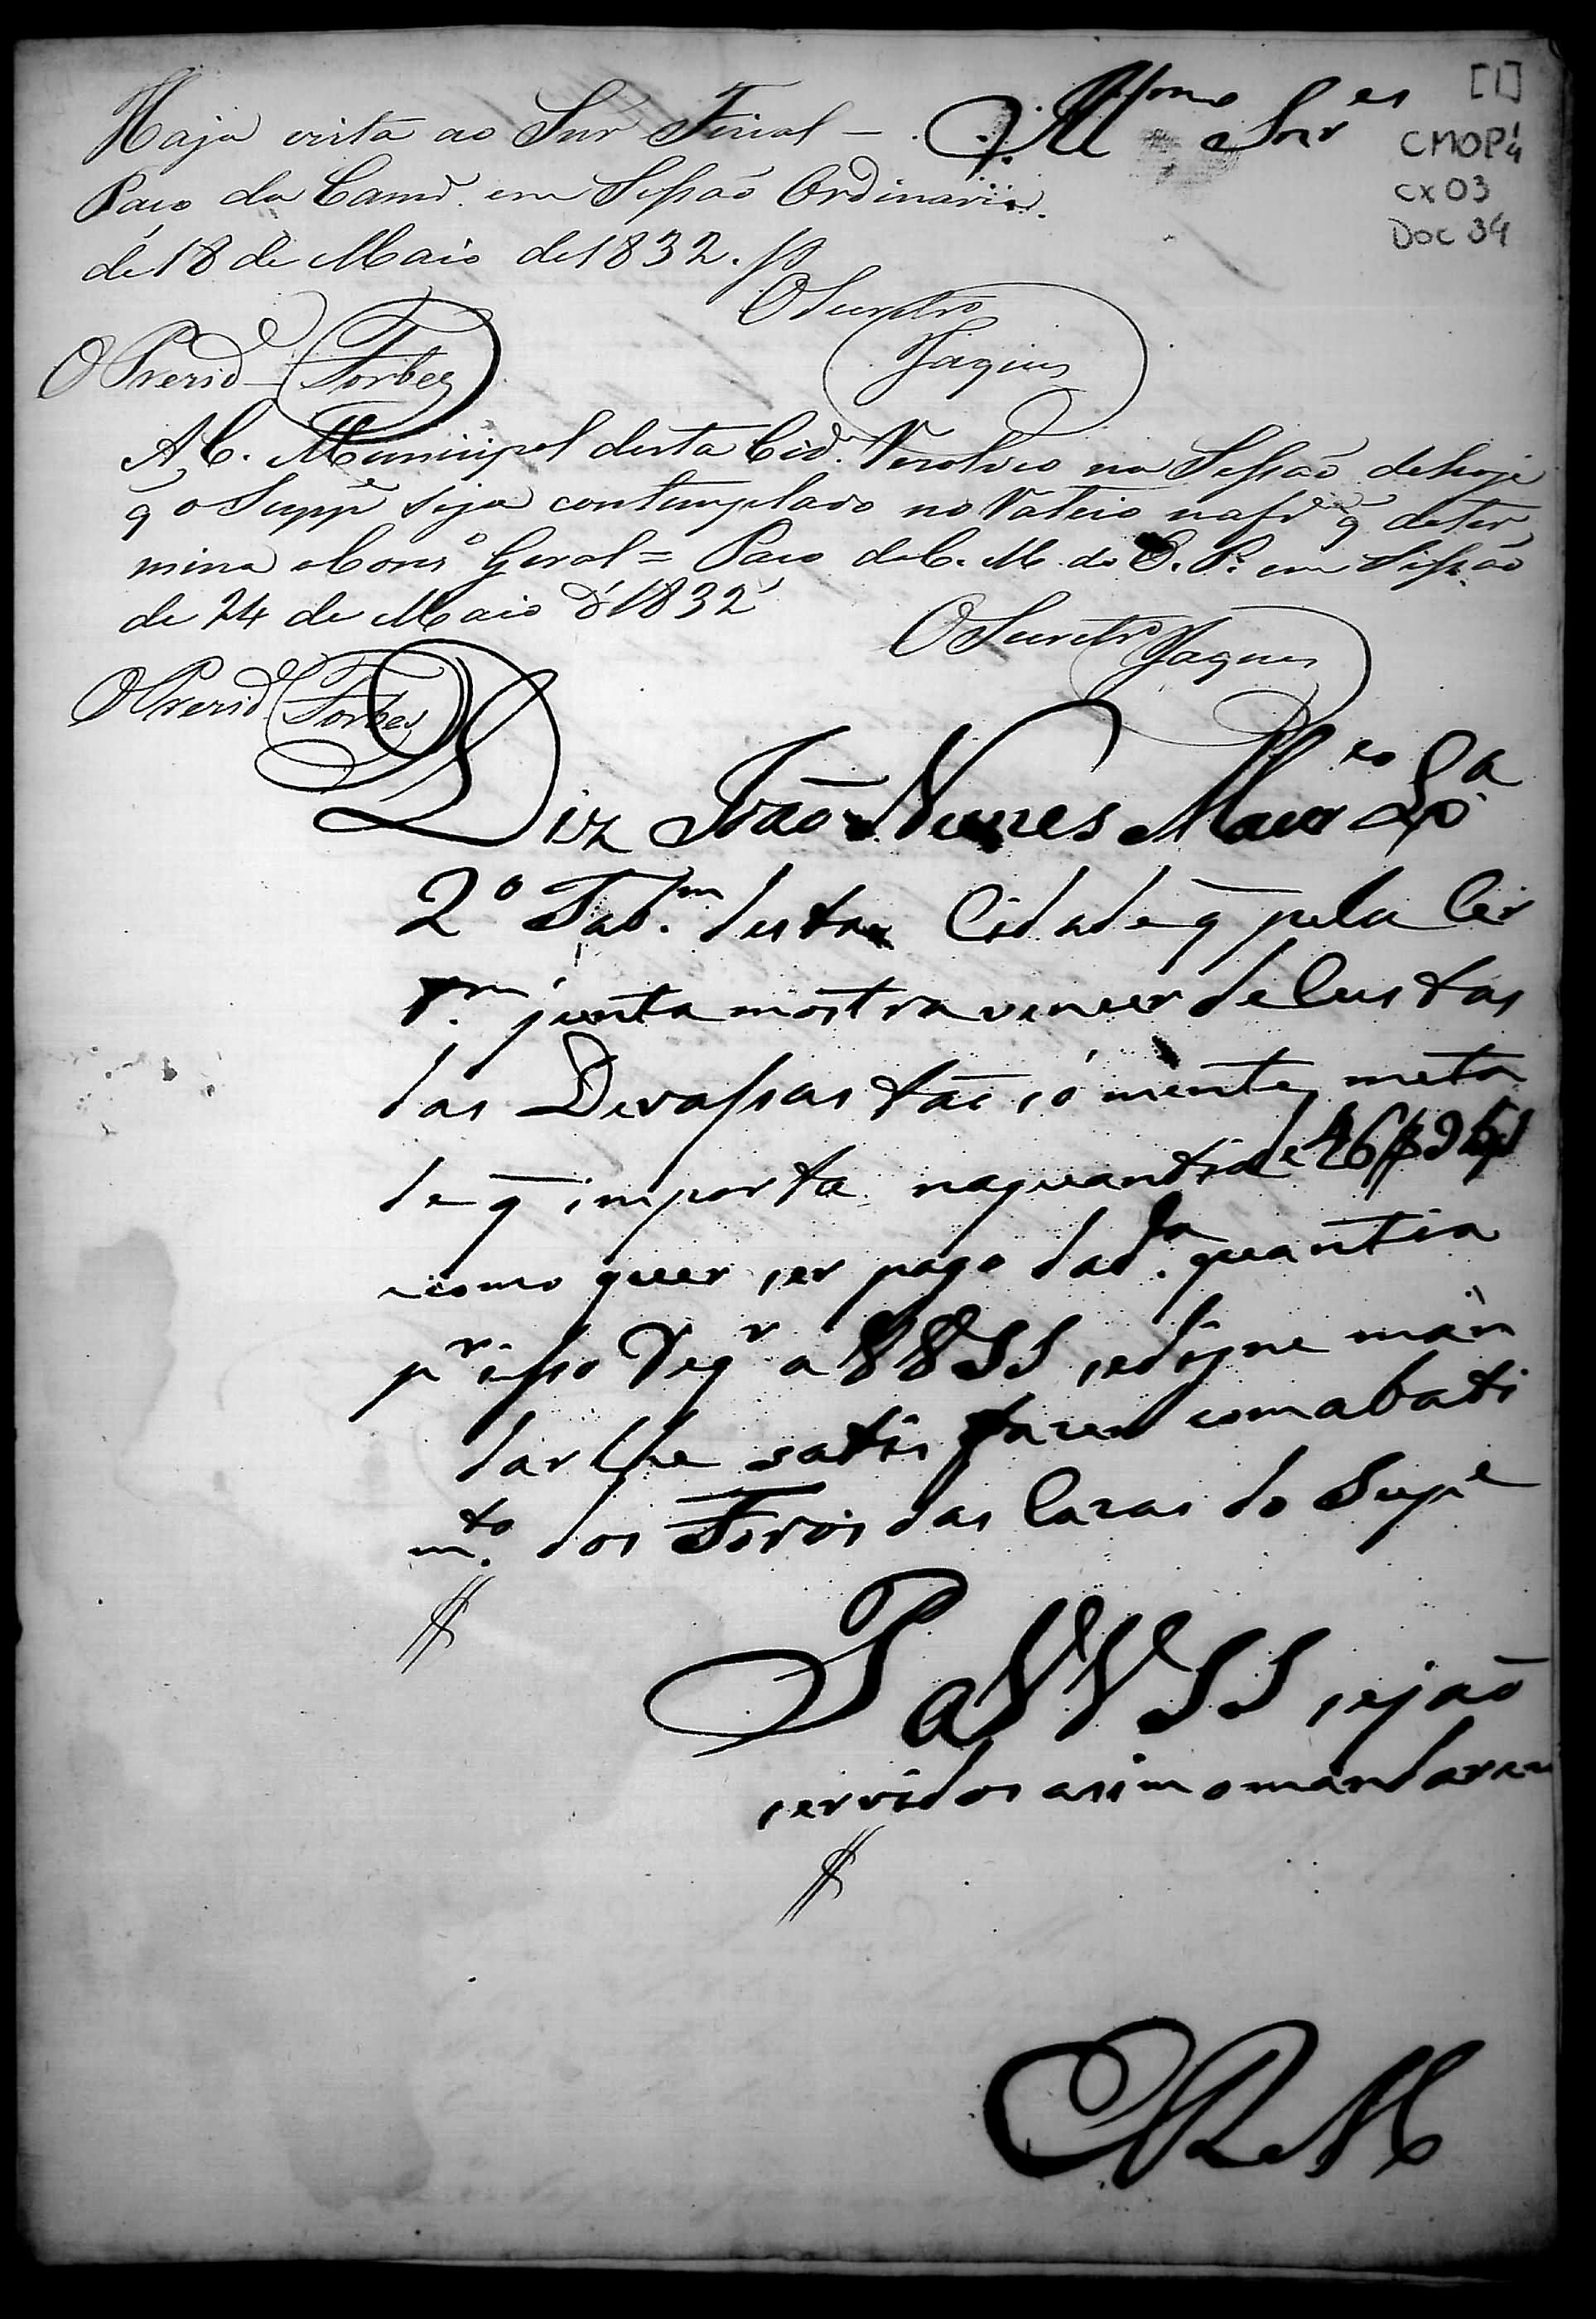 [1]
CMOP 1/4
CX 03
Doc 34
Illmos Snres
Haja vista ao Snr Fiscal —
Paço da Camª em Sessão Ordinaria
de 18 de Maio de 1832.
O Secretrº
Jaques
O Presid.e Forbes
A C. Municipal desta Cid.e resolveo na Sessão de hoje
q̃ o Supp.e seja contemplado no rateio na fr.ª q̃ deter
mina o Cons.º Geral = Paço da C. M. do O. P. em Sessão
de 24 de Maio d'1832
O Secretrº Jaques
O Presid.e Forbes
Diz João Nunes
2º Tab.m desta Cidade q̃ pela Cer
t.m junta mostra vencer de Custas
das Devassas tão só mente, meta
de q̃ importa na quantia de
como quer ser pago da d.ª quantia
p.r isso Req.r a VVSS se digne man
dar lhe satisfazer com abati
m.to dos Foros das Cazas do Sup.e
P a VVSS sejão
servidos asim o mandarem
ERM